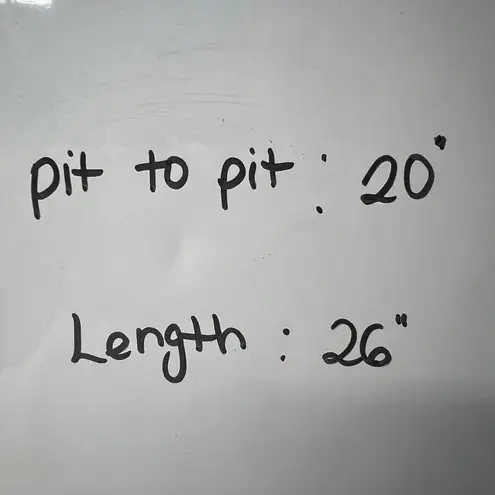 pit to pit : 20"
Length : 26"